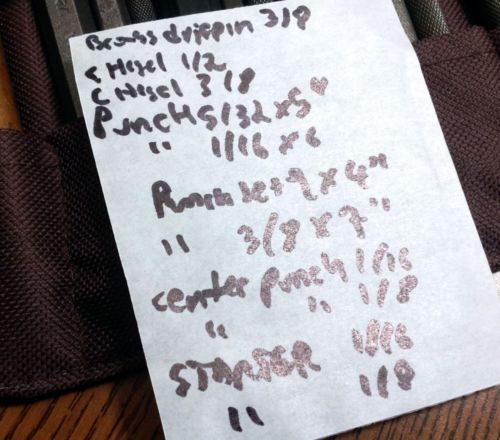 Brass drift pin 3/8
CHisel 1/2
CHisel 3/8
PuncH 5/32 x 5"
" 1/16 x 6
Punch x 4"
" 3/8 x 7"
center punch 1/16
" " 1/8
STARTER 1/16
" 1/8